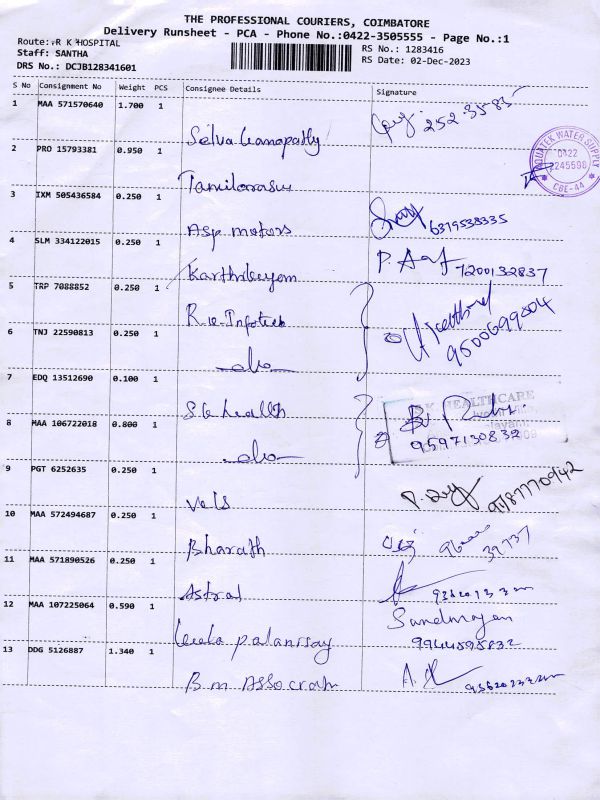 THE PROFESSIONAL COURIERS, COIMBATORE
Delivery Runsheet - PCA - Phone No.:0422-3505555 - Page No.:1
Route: R K HOSPITAL
Staff: SANTHA
DRS No.: DCJB128341601
RS No.: 1283416
RS Date: 02-Dec-2023
S No Consignment No Weight PCS Consignee Details Signature
1 MAA 571570640 1.700 1
Selva Ganapathy
2 PRO 15793381 0.950 1
Tamilarasu
AQUATEK WATER SUPPLY
0422
2245598
CBE-44
3 IXM 505436584 0.250 1
Asp motors 6379538335
4 SLM 334122015 0.250 1
Karthikeyem P. 7200132837
5 TRP 7088852 0.250 1
R.K. Infotech 9500699804
6 TNJ 22590813 0.250 1
-do-
7 EDQ 13512690 0.100 1
S.G health
HEALTHCARE
8 MAA 106722018 0.800 1
-do- 9597130832
9 PGT 6252635 0.250 1
Vels
10 MAA 572494687 0.250 1
Bharath
11 MAA 571890526 0.250 1
Astral
12 MAA 107225064 0.590 1
palanisay 9944595832
13 DDG 5126887 1.340 1
B m Associati